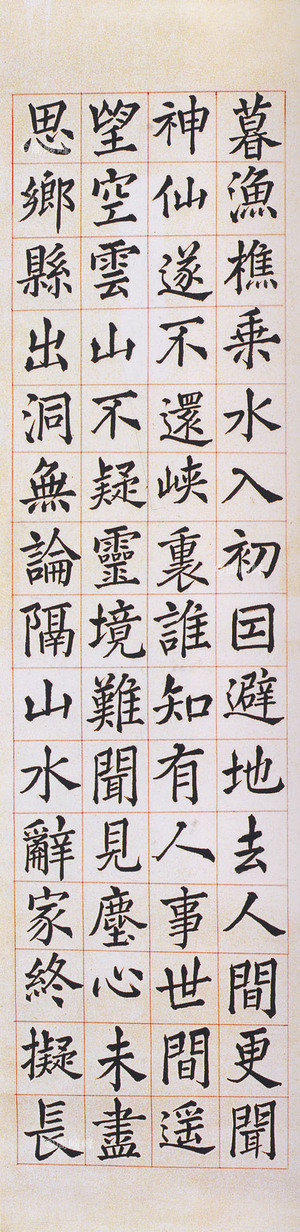 暮漁樵乗水入初因避地去人間更聞
神仙遂不還峽裏誰知有人事世間遥
望空雲山不疑靈境難聞見塵心未盡
思鄉縣出洞無論隔山水辭家終擬長